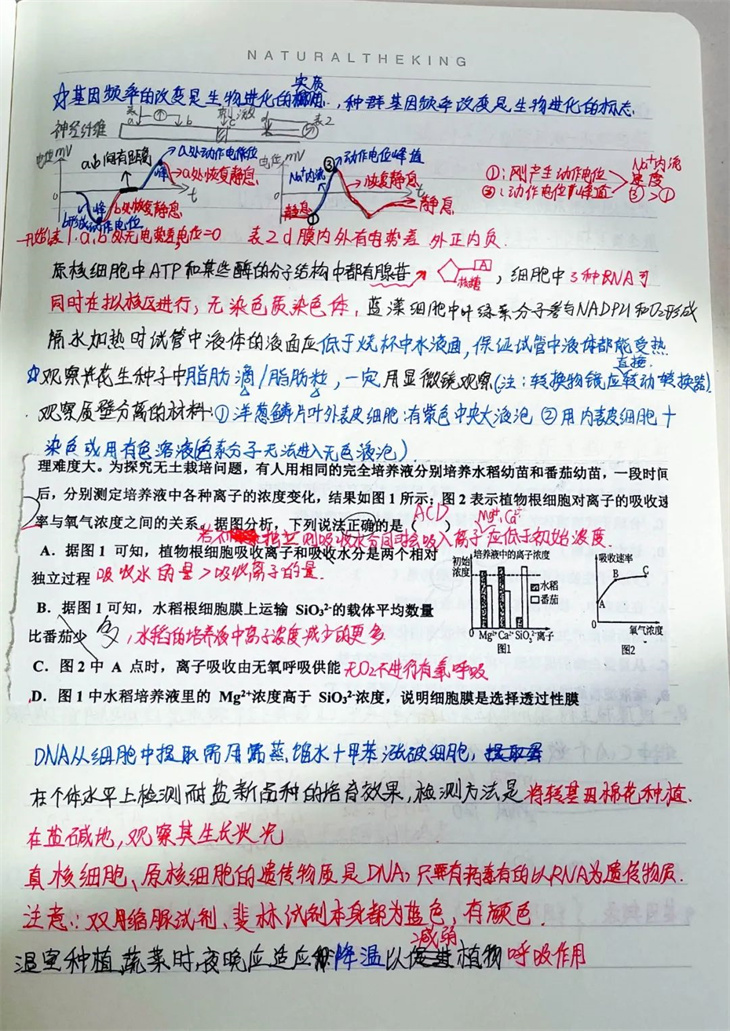 NATURALTHEKING
☆基因频率的改变是生物进化的实质,种群基因频率改变是生物进化的标志.
神经纤维 表1 a b 刺激 c d 表2
电位mV a,b间有距离 a处动作电位 峰 a处恢复静息 t
0 峰 b处恢复静息 b形成动作电位
电位mV Na⁺内流 ③ 动作电位峰值 恢复静息 t 静息 ① 静息
①:刚产生动作电位
③:动作电位峰值
Na⁺内流速度 ③>①
开始表1.a,b处无电势差,电位=0 表2 d膜内外有电势差 外正内负.
原核细胞中ATP和某些酶的分子结构中都有腺苷 核糖 A ,细胞中3种RNA可
同时在拟核区进行,无染色质染色体,蓝藻细胞中叶绿素分子参与NADPH和O₂形成
隔水加热时试管中液体的液面应低于烧杯中水液面,保证试管中液体都能受热
☆观察花生种子中脂肪滴/脂肪粒,一定用显微镜观察(注:转换物镜应直接转动转换器)
观察质壁分离的材料:①洋葱鳞片叶外表皮细胞:有紫色中央大液泡 ②用内表皮细胞+
染色或用有色溶液(色素分子无法进入无色液泡)
理难度大。为探究无土栽培问题,有人用相同的完全培养液分别培养水稻幼苗和番茄幼苗,一段时间
后,分别测定培养液中各种离子的浓度变化,结果如图 1 所示;图 2 表示植物根细胞对离子的吸收速
率与氧气浓度之间的关系。据图分析,下列说法正确的是( ) ACD
Mg²⁺,Ca²⁺
独立则吸收水分同时会吸入离子应低于初始浓度.
A.据图 1 可知,植物根细胞吸收离子和吸收水分是两个相对
独立过程 吸收水的量>吸收离子的量.
B.据图 1 可知,水稻根细胞膜上运输 SiO₃²⁻的载体平均数量
比番茄少 多,水稻的培养液中离子浓度减少的更多
C.图 2 中 A 点时,离子吸收由无氧呼吸供能 无O₂不进行有氧呼吸
D.图 1 中水稻培养液里的 Mg²⁺浓度高于 SiO₃²⁻浓度,说明细胞膜是选择透过性膜
培养液中的离子浓度
初始浓度
水稻
番茄
0 Mg²⁺ Ca²⁺ SiO₃²⁻ 离子
图1
吸收速率
A B C
0 氧气浓度
图2
DNA从细胞中提取需用蒸馏水+甲苯涨破细胞,
在个体水平上检测耐盐新品种的培育效果,检测方法是将转基因棉花种植
在盐碱地,观察其生长状况
真核细胞、原核细胞的遗传物质是DNA,只要有病毒有的以RNA为遗传物质.
注意:双缩脲试剂、斐林试剂本身都为蓝色,有颜色.
温室种植蔬菜时,夜晚应适应降温以减弱植物呼吸作用